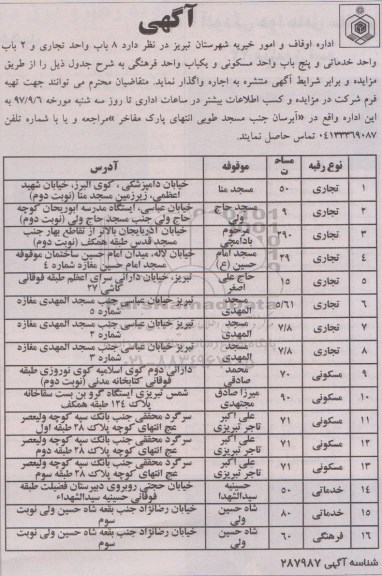 آگهی
اداره اوقاف و امور خیریه شهرستان تبریز در نظر دارد ۸ باب واحد تجاری و ۲ باب
واحد خدماتی و پنج باب واحد مسکونی و یکباب واحد فرهنگی به شرح جدول ذیل را از طریق
مزایده و برابر شرایط آگهی منتشره به اجاره واگذار نماید. متقاضیان محترم می توانند جهت تهیه
فرم شرکت در مزایده و کسب اطلاعات بیشتر در ساعات اداری تا روز سه شنبه مورخه ۹۷/۹/۶ به
این اداره واقع در «آبرسان جنب مسجد طوبی انتهای پارک مفاخر» مراجعه و یا با شماره تلفن
۰۴۱۳۳۳۶۹۰۸۷ تماس حاصل نمایند.
نوع رقبه مساحت موقوفه آدرس
۱ تجاری ۵۰ مسجد منا خیابان دامپزشکی ، کوی البرز، خیابان شهید
اعظمی، زیرزمین مسجد منا (نوبت دوم)
۲ تجاری ۹ مسجد حاج ولی خیابان عباسی، ایستگاه مدرسه ابوریحان کوچه
حاج ولی جنب مسجد حاج ولی (نوبت دوم)
۳ تجاری ۲۹۰ مرحوم بادامچی خیابان آذربایجان بالاتر از تقاطع بهار جنب
مسجد قدس طبقه همکف (نوبت دوم)
۴ تجاری ۲۹ مسجد امام حسین (ع) خیابان لاله، میدان امام حسین ساختمان موقوفه
مسجد امام حسین مغازه شماره ۴
۵ تجاری ۱۵ حاج علی اصغر تبریز، خیابان دارائی سرای اعظم طبقه فوقانی
کاشی ۲۷
۶ تجاری ۵/۶۱ مسجد المهدی تبریز خیابان عباسی جنب مسجد المهدی مغازه
شماره ۵
۷ تجاری ۷/۸ مسجد المهدی تبریز خیابان عباسی جنب مسجد المهدی مغازه
شماره
۸ تجاری ۷/۸ مسجد المهدی تبریز خیابان عباسی جنب مسجد المهدی مغازه
شماره ۳
۹ مسکونی ۷۰ محمد صادقی دارائی دوم کوی اسلامیه کوی نوروزی طبقه
فوقانی کتابخانه مدنی (نوبت دوم)
۱۰ مسکونی ۹۰ میرزا صادق مجتهدی شمس تبریزی ایستگاه گرو بن بست سقاخانه
پلاک ۱۲۴ طبقه همکف
۱۱ مسکونی ۷۱ علی اکبر تاجر تبریزی سرگرد محققی جنب بانک سپه کوچه ولیعصر
عج انتهای کوچه پلاک ۲۸ طبقه اول
۱۲ مسکونی ۷۱ علی اکبر تاجر تبریزی سرگرد محققی جنب بانک سپه کوچه ولیعصر
عج انتهای کوچه پلاک ۲۸ طبقه دوم
۱۳ مسکونی ۷۱ علی اکبر تاجر تبریزی سرگرد محققی جنب بانک سپه کوچه ولیعصر
عج انتهای کوچه پلاک ۲۸ طبقه سوم
۱۴ خدماتی ۵۰ حسینیه سیدالشهدا خیابان حجتی روبروی دبیرستان فضیلت طبقه
فوقانی حسینیه سیدالشهداء
۱۵ خدماتی ۸۰ شاه حسین ولی خیابان رضانژاد جنب بقعه شاه حسین ولی نوبت
سوم
۱۶ فرهنگی ۶۰ شاه حسین ولی خیابان رضانژاد جنب بقعه شاه حسین ولی نوبت
سوم
شناسه آگهی ۲۸۷۹۸۷